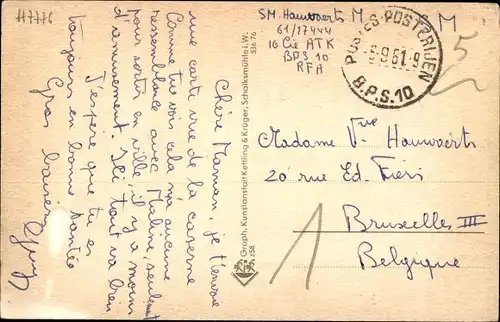 H7776
Chère Maman, je t'envoie
une carte vue de la caserne
Comme tu vois cela n'a aucune
ressemblance avec Maline, seulement
pour sortir en ville, il y a moins
d'amusement. Ici tout va bien
J'espère que tu es
toujours en bonne santée
Gros baisers
Graph. Kunstanstalt Kettling & Krüger, Schalksmühle i. W.
536 76
z58
SM. Hauwaerts M
61/17444
16 Cie ATK
BPS 10
RFA
F M
5
POSTES-POSTERIJEN
-5-9 61-9
B.P.S. 10
Madame Vve Hauwaerts
20 rue Ed. Fiers
Bruxelles III
Belgique
1